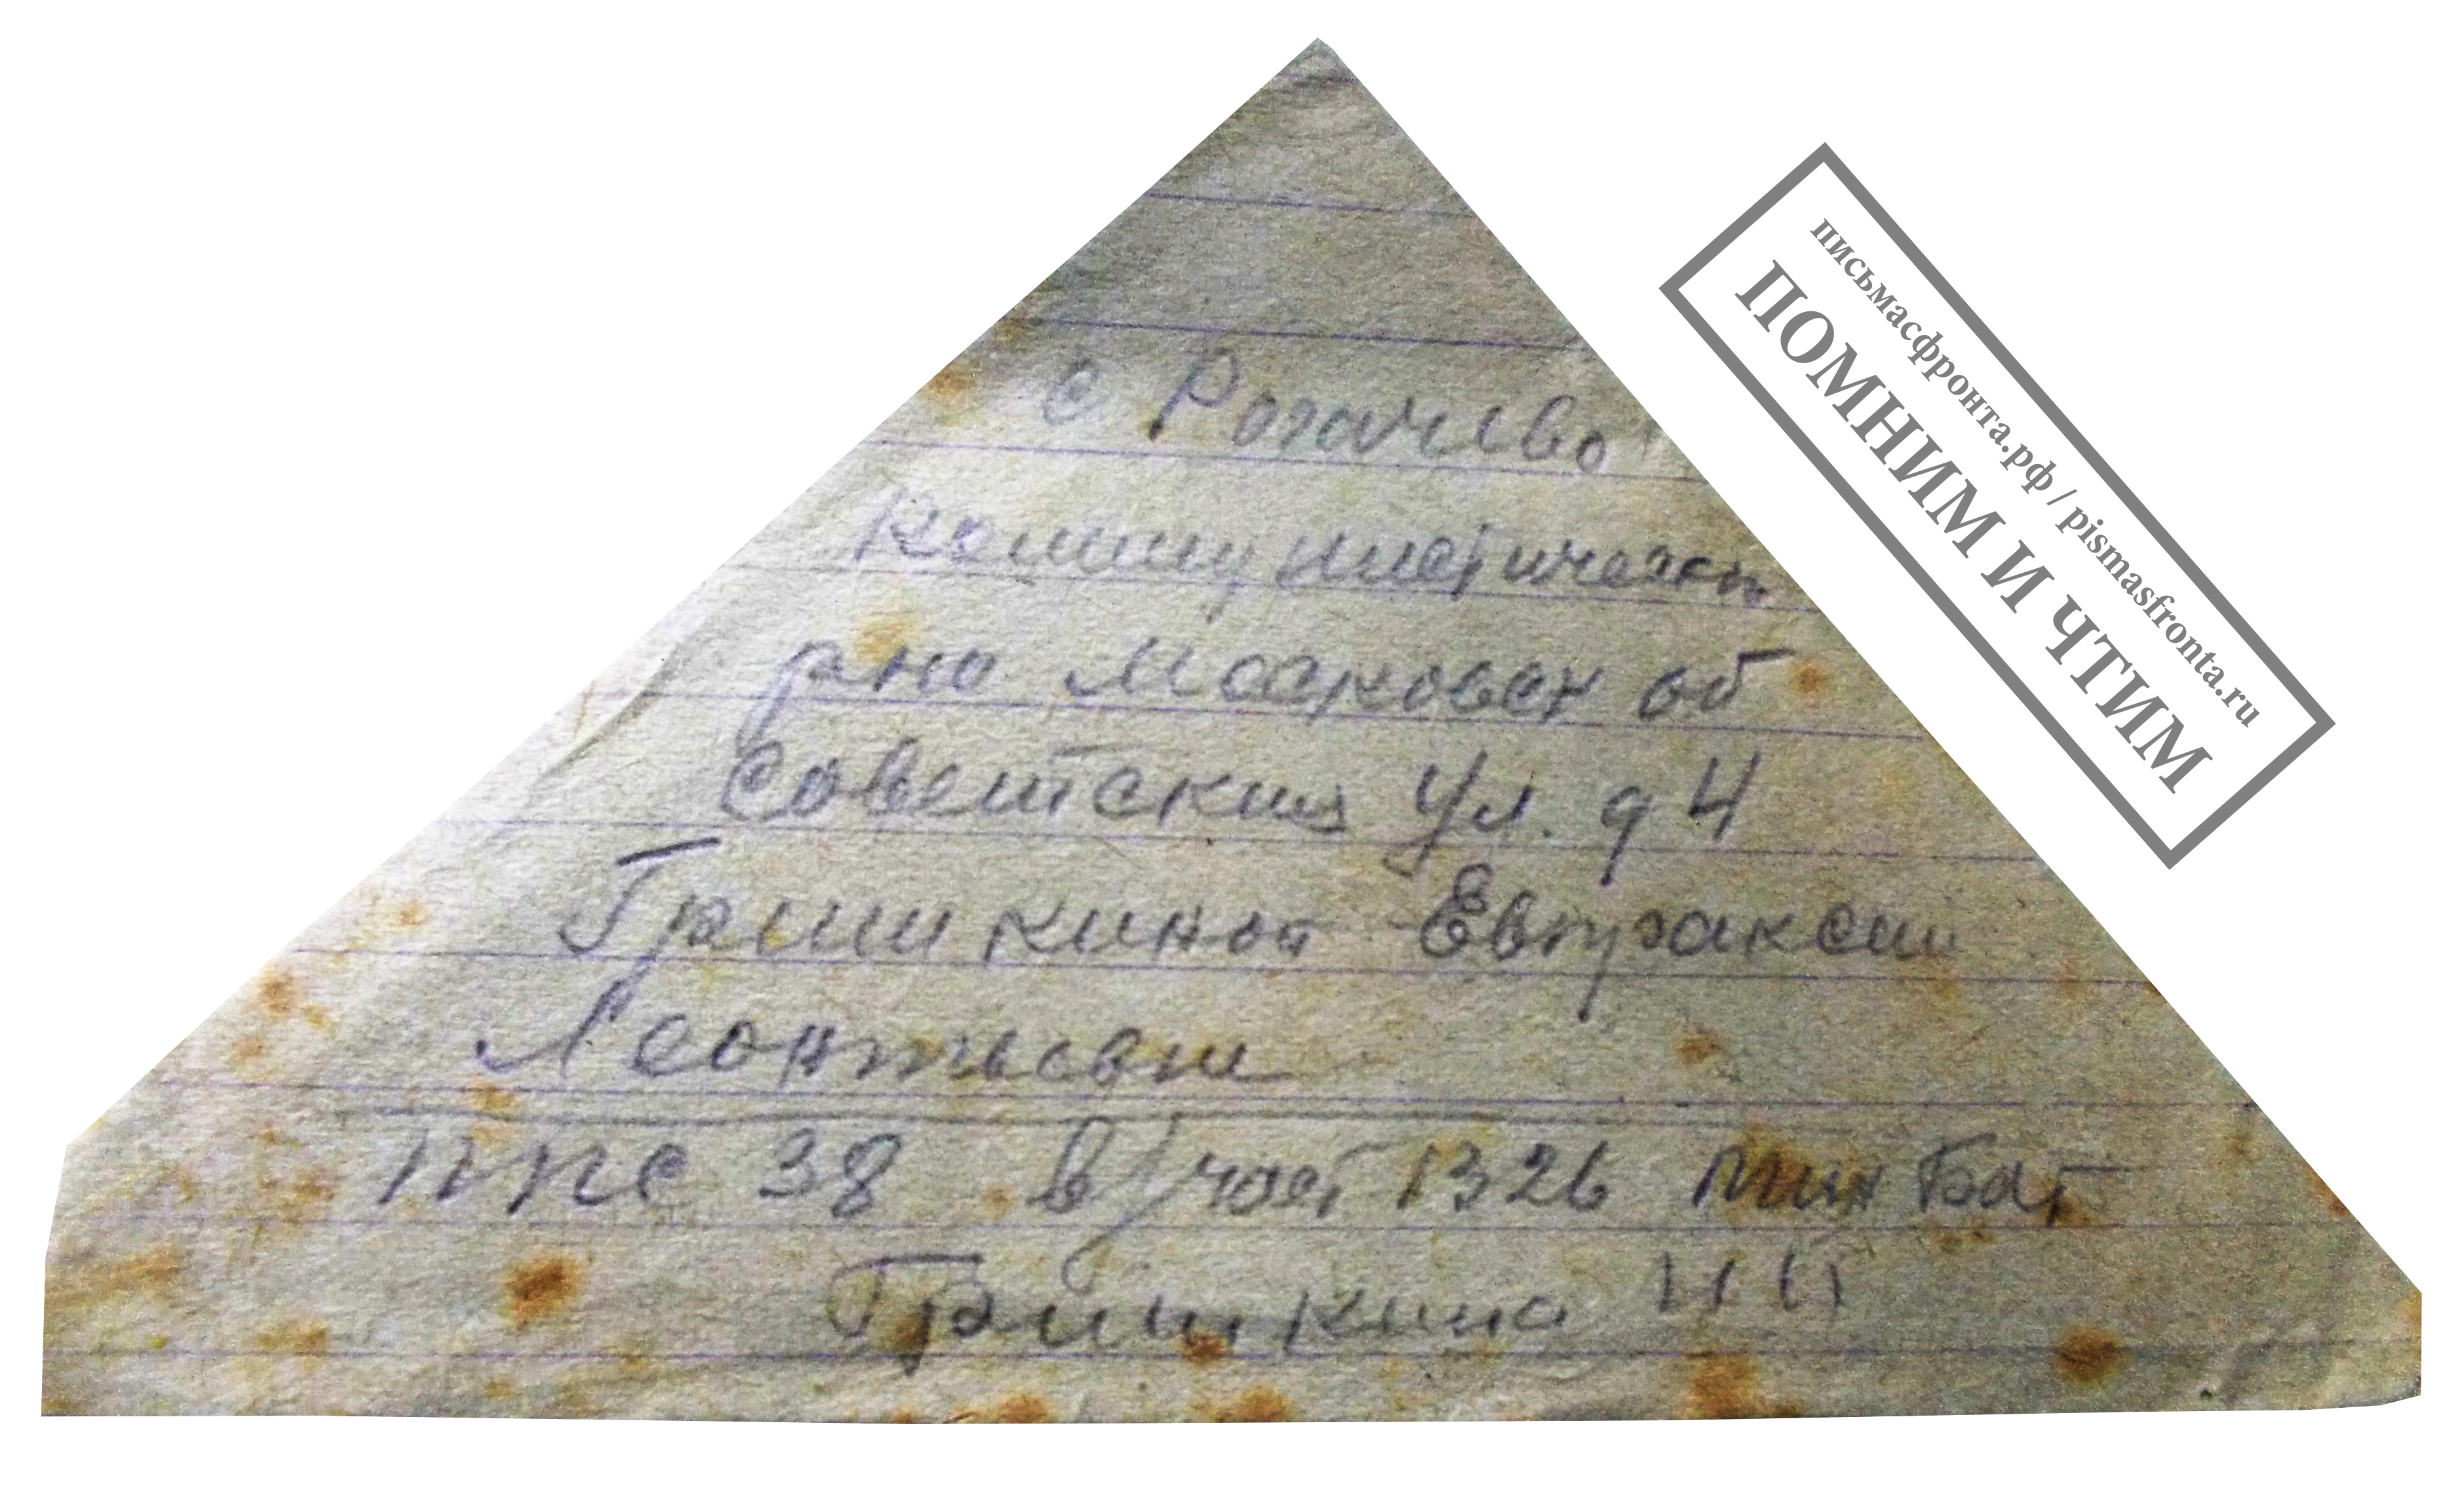 с Рогачево
Коммунистическ
рна Московск об
Советская ул. д 4
Гришкиной Евпраксии
Леонтьевне
ппс 38 в/част 1326 мин бат
Гришкина
письмасфронта.рф / pismasfronta.ru
ПОМНИМ И ЧТИМ